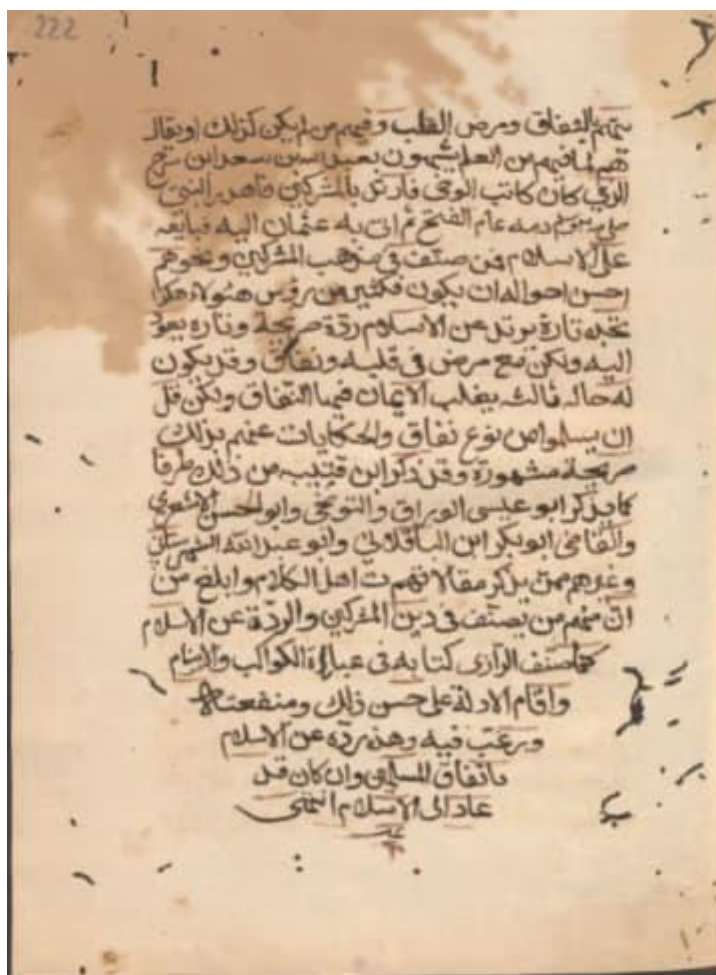 222
يتهم بالنفاق ومرض القلب وفيهم من لم يكن كذلك او يقال
هم لما فيهم من العلم يشبهون بعبد الله بن سعد ابن سرح
الذي كان كاتب الوحي فارتد بالمشركين فاهدر النبي
صلى الله عليه وسلم دمه عام الفتح ثم اتى به عثمان اليه فبايعه
على الاسلام فمن صنف في مذهب المشركين ونحوهم
احسن احواله ان يكون فكثير من رؤس هؤلاء هكذا
تجده تارة يرتد عن الاسلام ردة صريحة وتارة يعود
اليه ولكن مع مرض في قلبه ونفاق وقد يكون
له حال ثالثه يغلب الايمان فيها النفاق ولكن قل
ان يسلموا من نوع نفاق والحكايات عنهم بذلك
صريحة مشهورة وقد ذكر ابن قتيبه من ذلك طرفا
كما يذكر ابو عيسى الوراق والنوبختي وابو الحسن الاشعري
والقاضي ابو بكر ابن الباقلاني وابو عبد الله الشهرستاني
وغيرهم ممن يذكر مقالاتهم ت اهل الكلام وابلغ من
ان منهم من يصنف في دين المشركين والردة عن الاسلام
كما صنف الرازى كتابه في عبادة الكواكب والاصنام
واقام الادلة على حسن ذلك ومنفعته
ورغب فيه وهذه ردة عن الاسلام
باتفاق المسلمين وان كان قد
عاد الى الاسلام انتهى